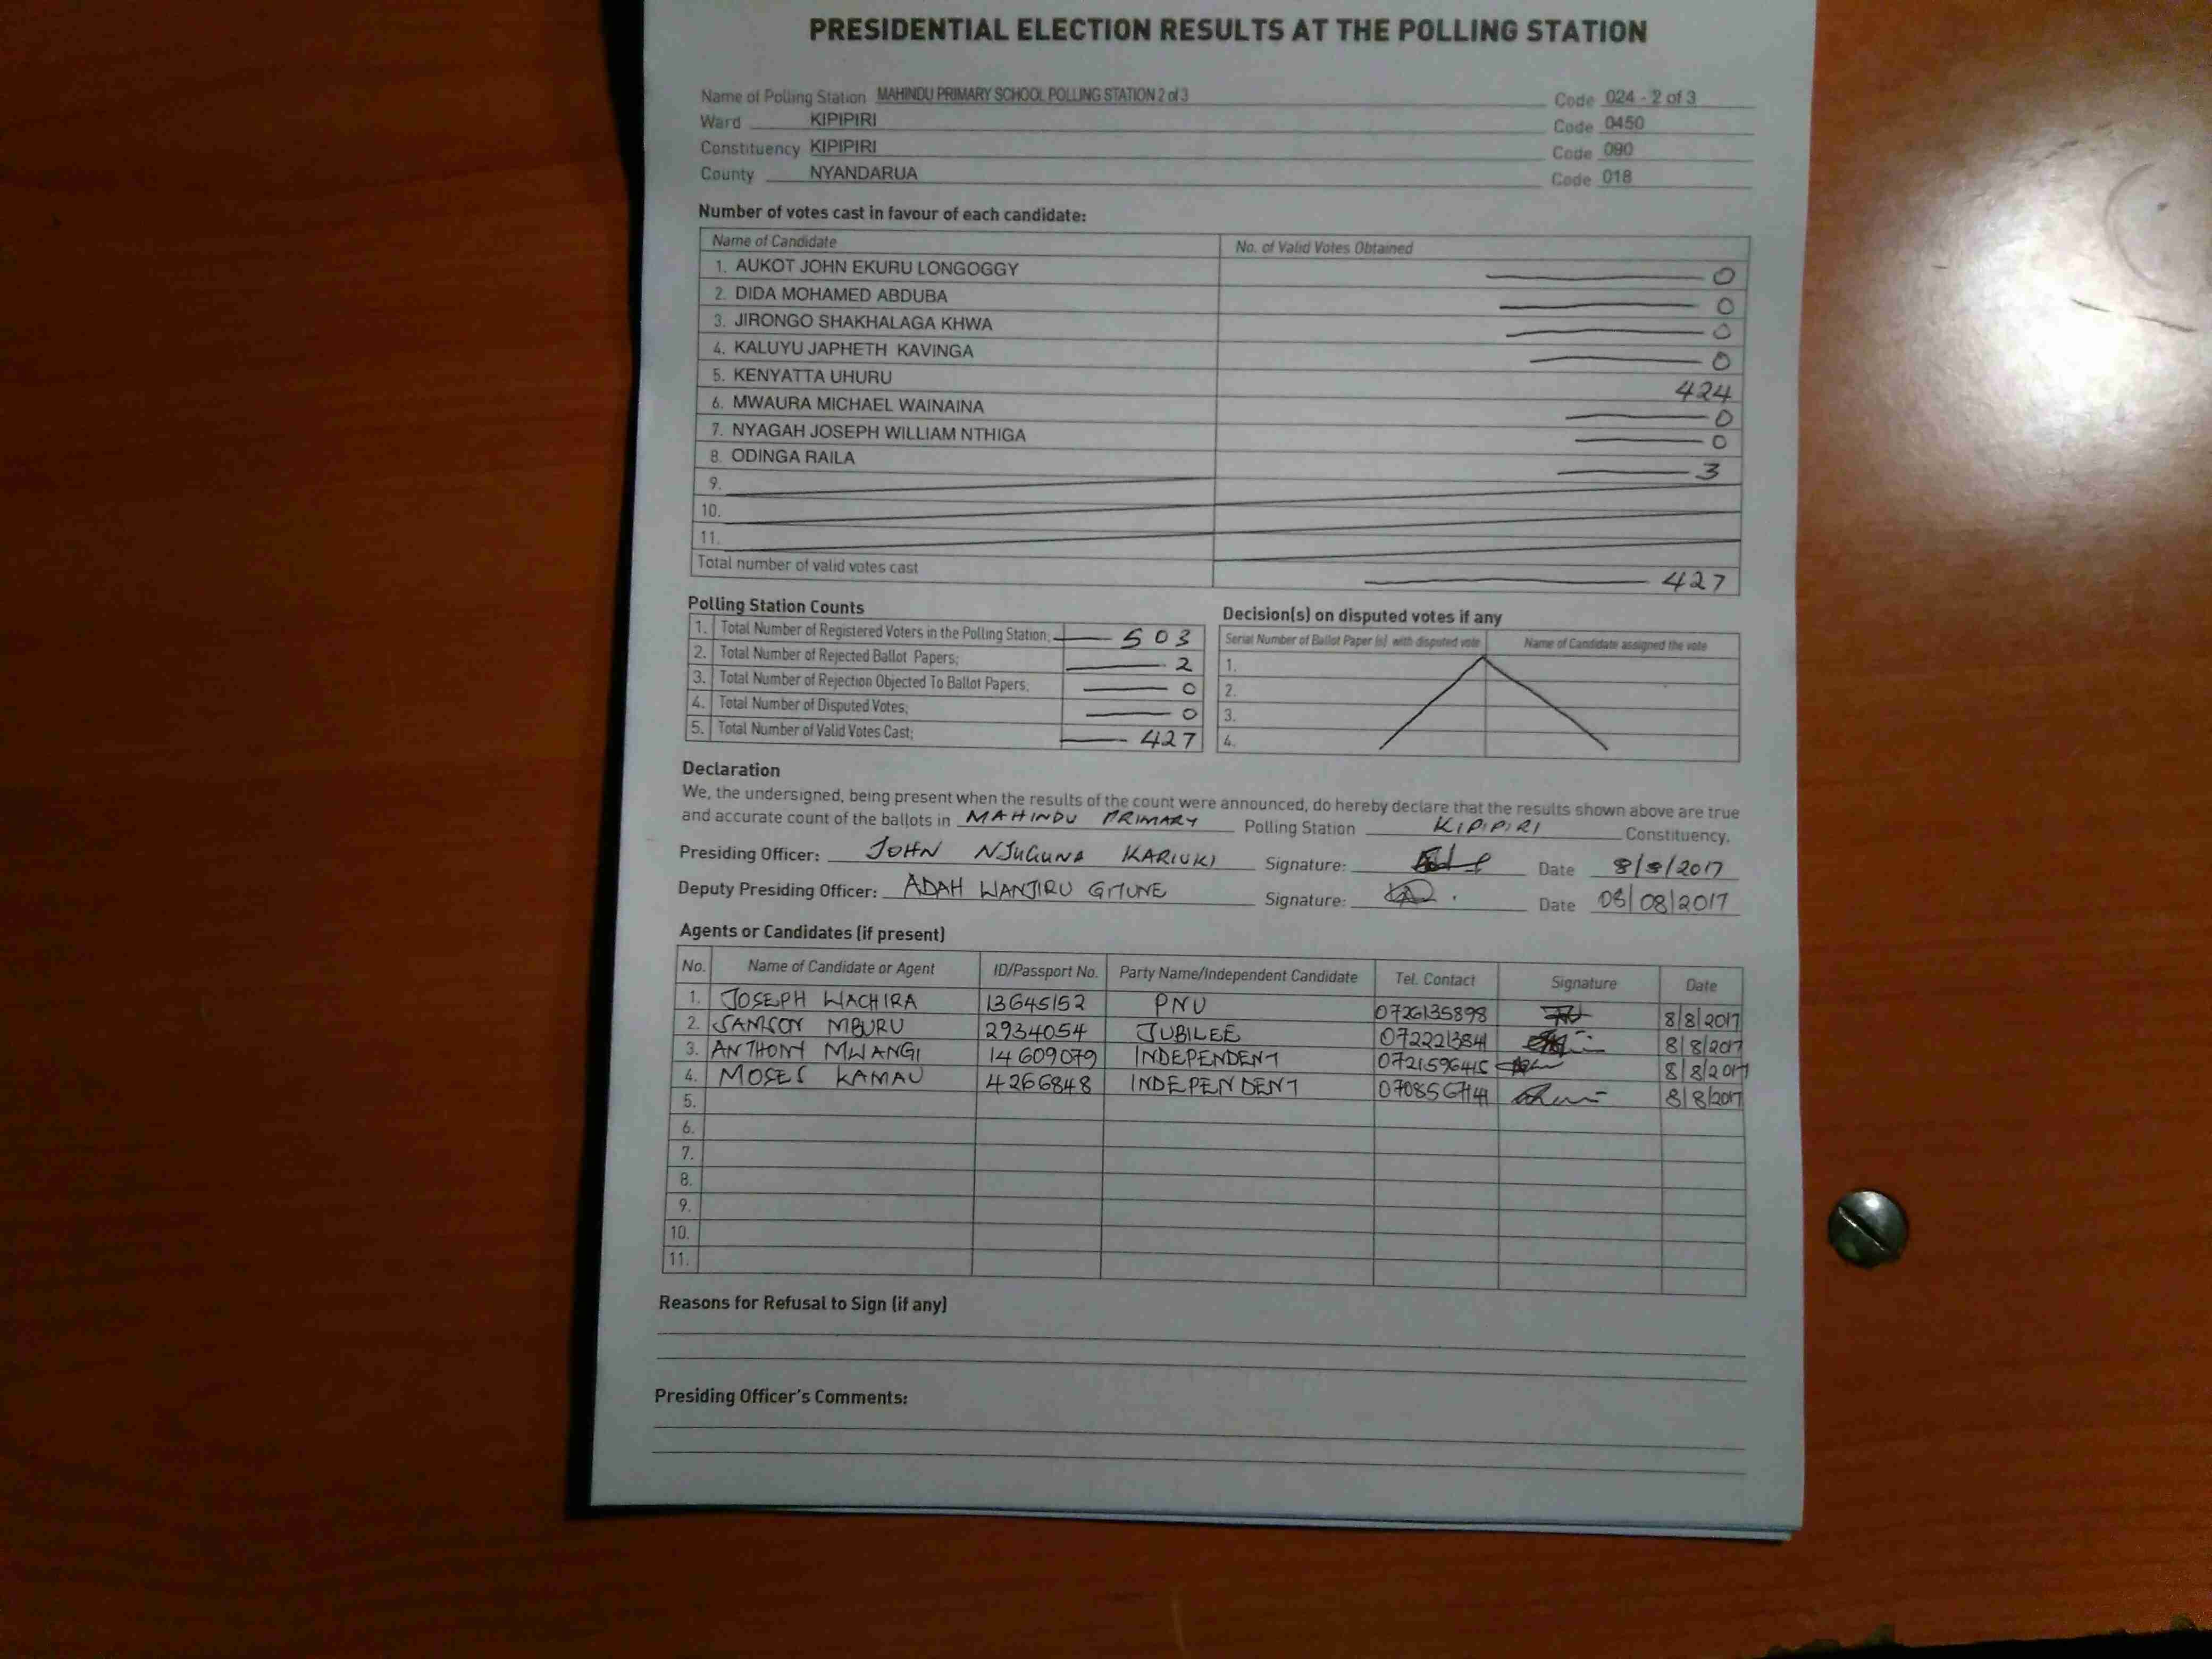 PRESIDENTIAL ELECTION RESULTS AT THE POLLING STATION
Name of Polling Station MAHINDU PRIMARY SCHOOL POLLING STATION 2 of 3 Code 024 - 2 of 3
Ward KIPIPIRI Code 0450
Constituency KIPIPIRI Code 090
County NYANDARUA Code 018
Number of votes cast in favour of each candidate:
Name of Candidate No. of Valid Votes Obtained
1. AUKOT JOHN EKURU LONGOGGY 0
2. DIDA MOHAMED ABDUBA 0
3. JIRONGO SHAKHALAGA KHWA 0
4. KALUYU JAPHETH KAVINGA 0
5. KENYATTA UHURU 424
6. MWAURA MICHAEL WAINAINA 0
7. NYAGAH JOSEPH WILLIAM NTHIGA 0
8. ODINGA RAILA 3
9.
10.
11.
Total number of valid votes cast 427
Polling Station Counts
1. Total Number of Registered Voters in the Polling Station; 503
2. Total Number of Rejected Ballot Papers; 2
3. Total Number of Rejection Objected To Ballot Papers; 0
4. Total Number of Disputed Votes; 0
5. Total Number of Valid Votes Cast; 427
Decision(s) on disputed votes if any
Serial Number of Ballot Paper (s) with disputed vote Name of Candidate assigned the vote
1.
2.
3.
4.
Declaration
We, the undersigned, being present when the results of the count were announced, do hereby declare that the results shown above are true
and accurate count of the ballots in MAHINDU PRIMARY Polling Station KIPIPIRI Constituency.
Presiding Officer: JOHN NJUGUNA KARIUKI Signature: Date 8/8/2017
Deputy Presiding Officer: ADAH WANJIRU GITUNE Signature: Date 08/08/2017
Agents or Candidates (if present)
No. Name of Candidate or Agent ID/Passport No. Party Name/Independent Candidate Tel. Contact Signature Date
1. JOSEPH WACHIRA 13645152 PNU 0726135898 8/8/2017
2. SAMSON MBURU 2934054 JUBILEE 0722213841 8/8/2017
3. ANTHONY MWANGI 14609079 INDEPENDENT 0721596415 8/8/2017
4. MOSES KAMAU 4266848 INDEPENDENT 8/8/2017
5.
6.
7.
8.
9.
10.
11.
Reasons for Refusal to Sign (if any)
Presiding Officer's Comments: